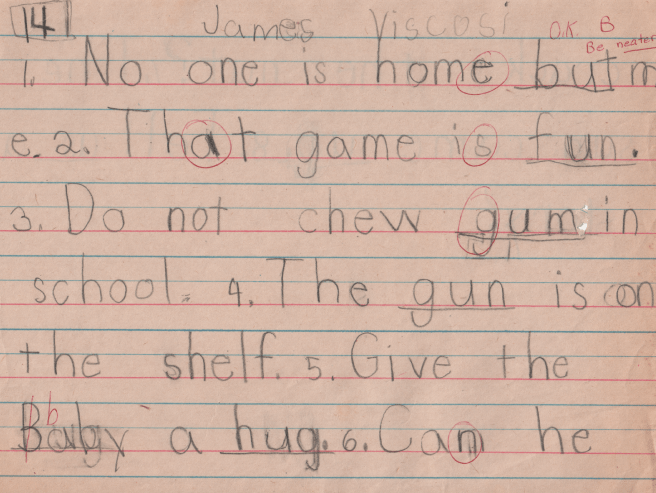 14 James Viscosi O.K. B
Be neater
1. No one is home but m
e. 2. That game is fun.
3. Do not chew gum in
school. 4. The gun is on
the shelf. 5. Give the
b
Baby a hug. 6. Can he